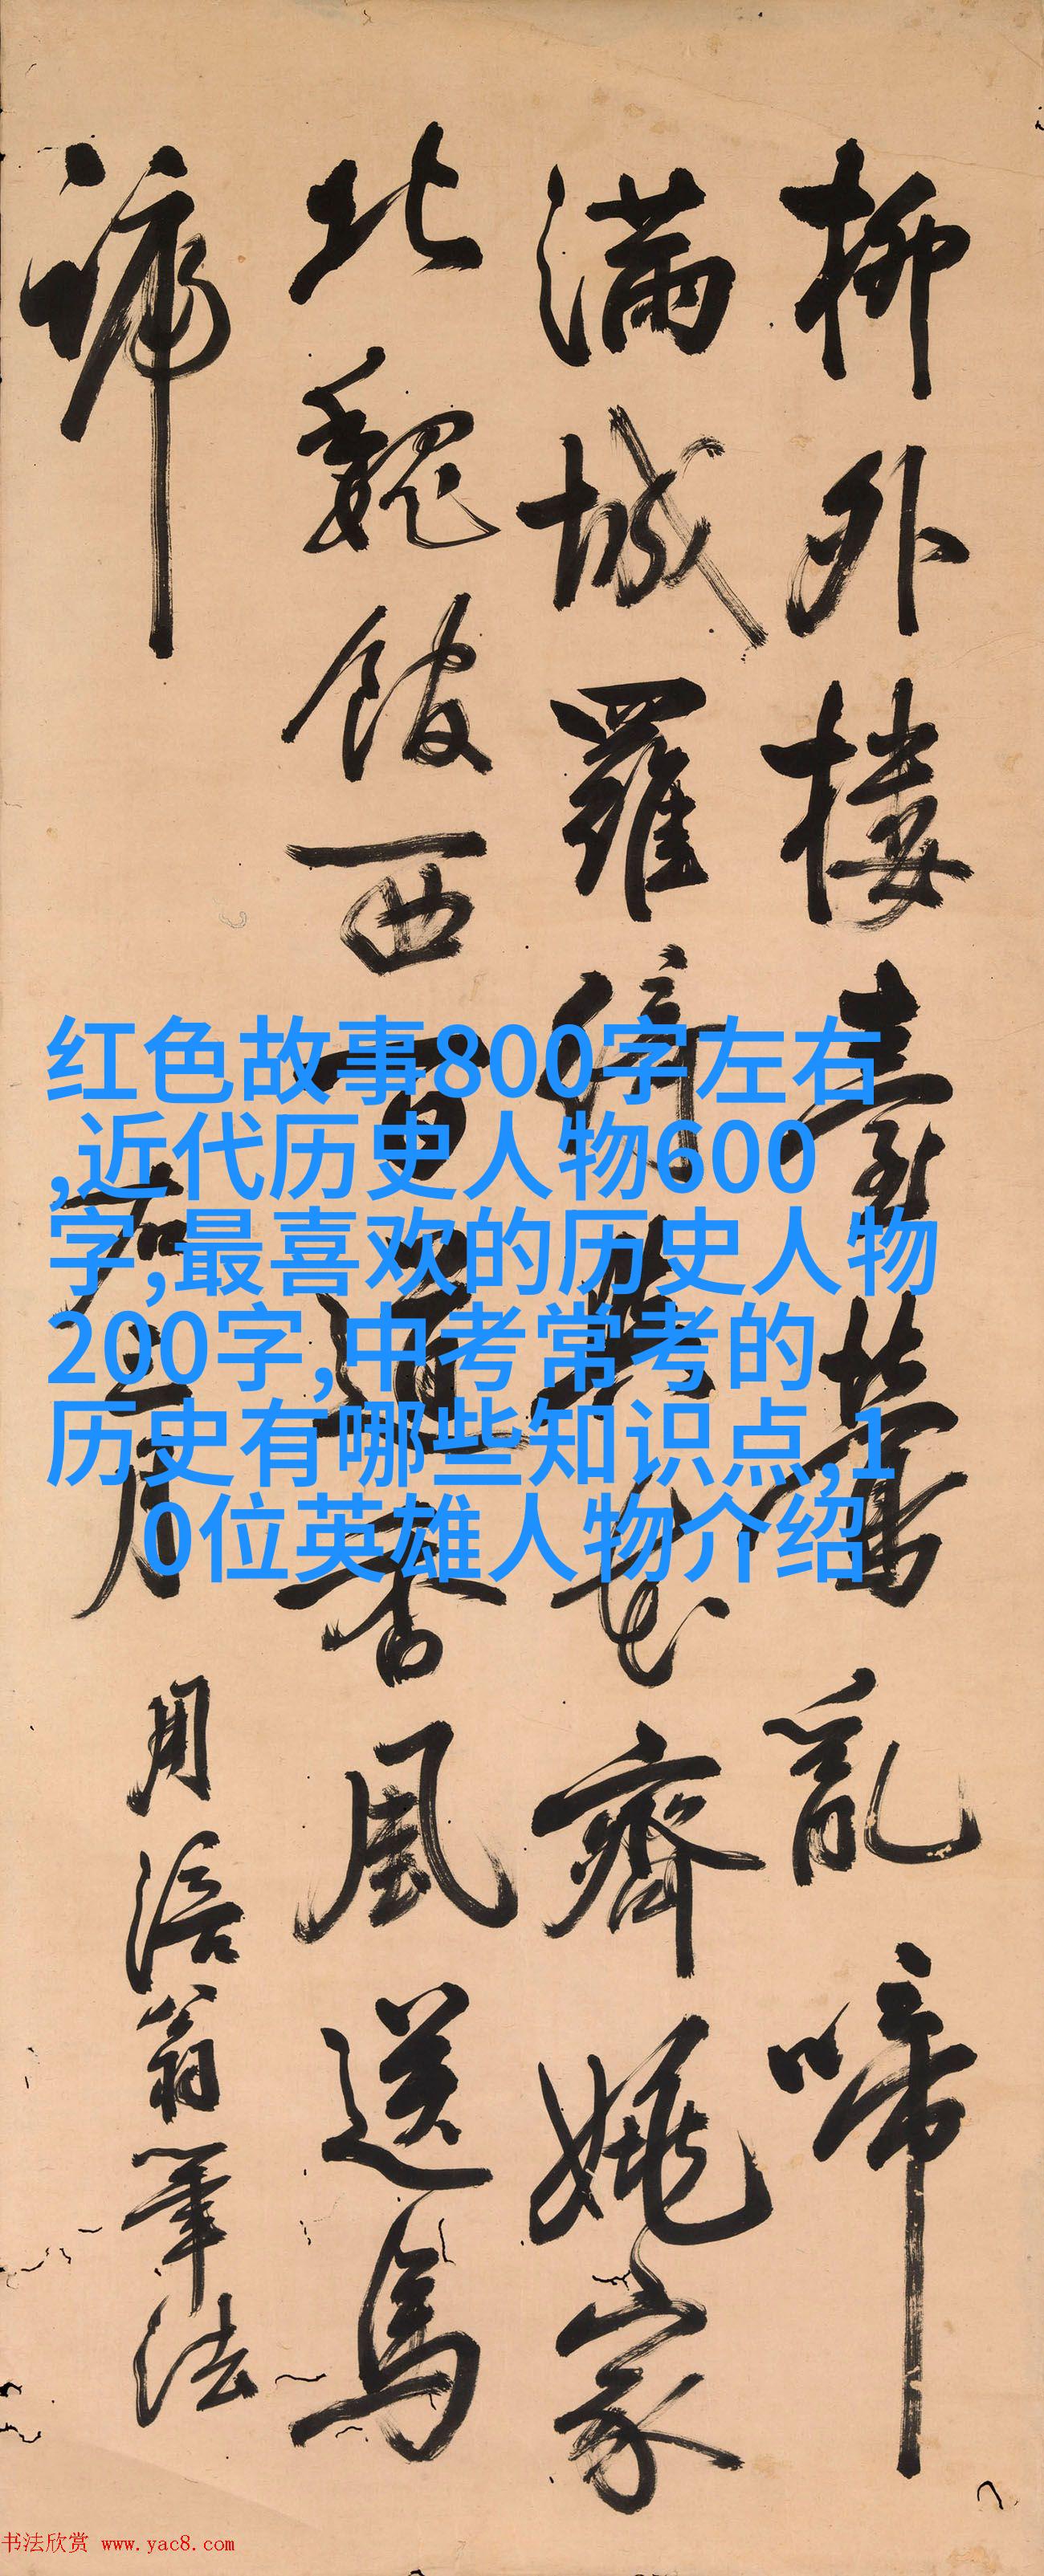 红色故事800字左右
,近代历史人物600
字,最喜欢的历史人物
200字,中考常考的
历史有哪些知识点,1
0位英雄人物介绍
柳外楼臺鶯亂啼
滿城羅花齊姚家
北魏西道香風送馬
蹄
用涪翁筆法
书法欣赏 www.yac8.com